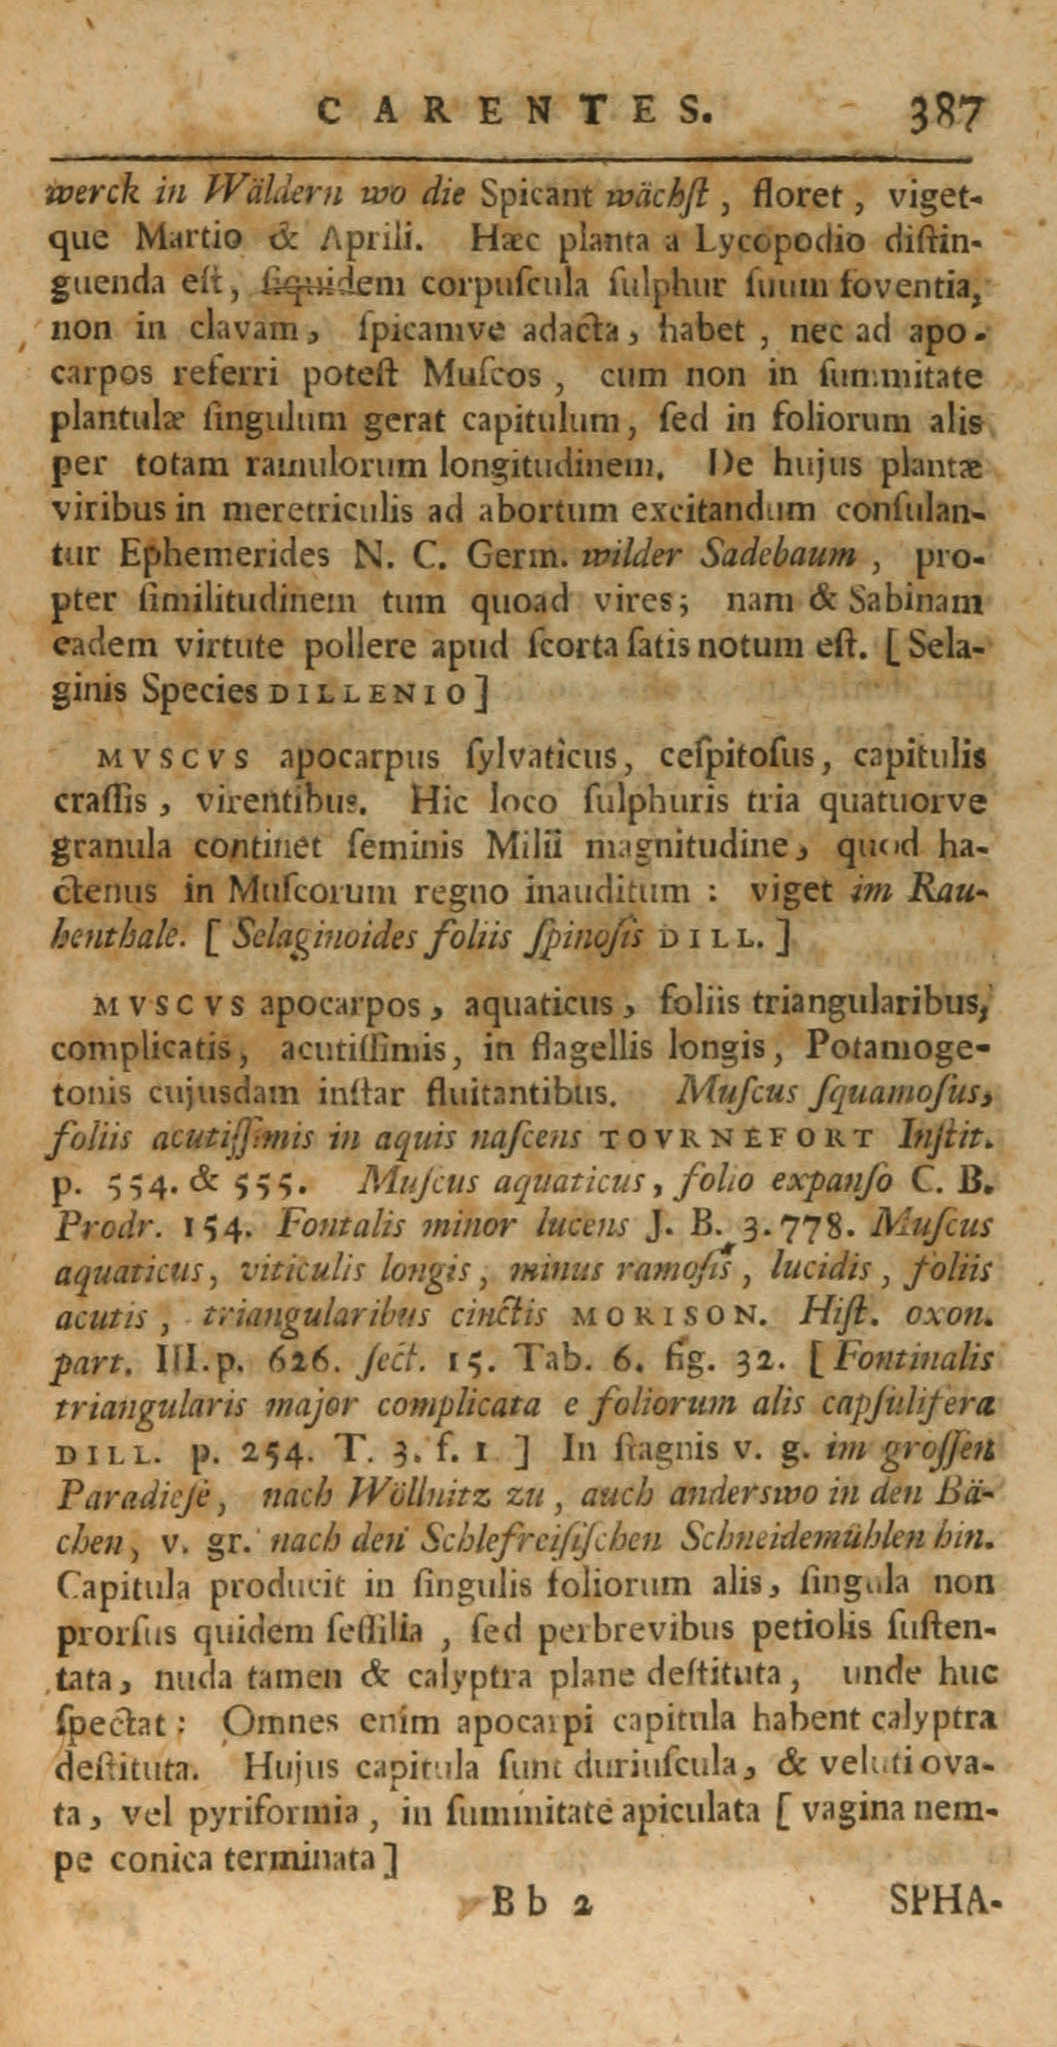 CARENTES. 387
werck in Wäldern wo die Spicant wächſt, floret, viget-
que Martio & Aprili. Hæc planta a Lycopodio diſtin-
guenda eſt, ſiquidem corpuſcula ſulphur ſuum foventia,
non in clavam, ſpicamve adacta, habet, nec ad apo-
carpos referri poteſt Muſcos, cum non in ſummitate
plantulæ ſingulum gerat capitulum, ſed in foliorum alis
per totam ramulorum longitudinem. De hujus plantæ
viribus in meretriculis ad abortum excitandum conſulan-
tur Ephemerides N. C. Germ. wilder Sadebaum, pro-
pter ſimilitudinem tum quoad vires; nam & Sabinam
eadem virtute pollere apud ſcorta ſatis notum eſt. [Sela-
ginis Species DILLENIO]
MVSCVS apocarpus ſylvaticus, ceſpitoſus, capitulis
craſſis, virentibus. Hic loco ſulphuris tria quatuorve
granula continet ſeminis Milii magnitudine, quod ha-
ctenus in Muſcorum regno inauditum : viget im Rau-
henthale. [Selaginoides foliis ſpinoſis DILL.]
MVSCVS apocarpos, aquaticus, foliis triangularibus,
complicatis, acutiſſimis, in flagellis longis, Potamoge-
tonis cujusdam inſtar fluitantibus. Muſcus ſquamoſus,
foliis acutiſſimis in aquis naſcens TOVRNEFORT Inſtit.
p. 554. & 555. Muſcus aquaticus, folio expanſo C. B.
Prodr. 154. Fontalis minor lucens J. B. 3. 778. Muſcus
aquaticus, viticulis longis, minus ramoſis, lucidis, foliis
acutis, triangularibus cinctis MORISON. Hiſt. oxon.
part. III. p. 626. ſect. 15. Tab. 6. fig. 32. [Fontinalis
triangularis major complicata e foliorum alis capſulifera
DILL. p. 254. T. 3. f. 1 ] In ſtagnis v. g. im groſſen
Paradieſe, nach Wöllnitz zu, auch anderswo in den Bä-
chen, v. gr. nach den Schlefreiſiſchen Schneidemühlen hin.
Capitula producit in ſingulis foliorum alis, ſingula non
prorſus quidem ſeſſilia, ſed perbrevibus petiolis ſuſten-
tata, nuda tamen & calyptra plane deſtituta, unde huc
ſpectat: Omnes enim apocarpi capitula habent calyptra
deſtituta. Hujus capitula ſunt duriuſcula, & veluti ova-
ta, vel pyriformia, in ſummitate apiculata [vagina nem-
pe conica terminata]
Bb 2 SPHA-